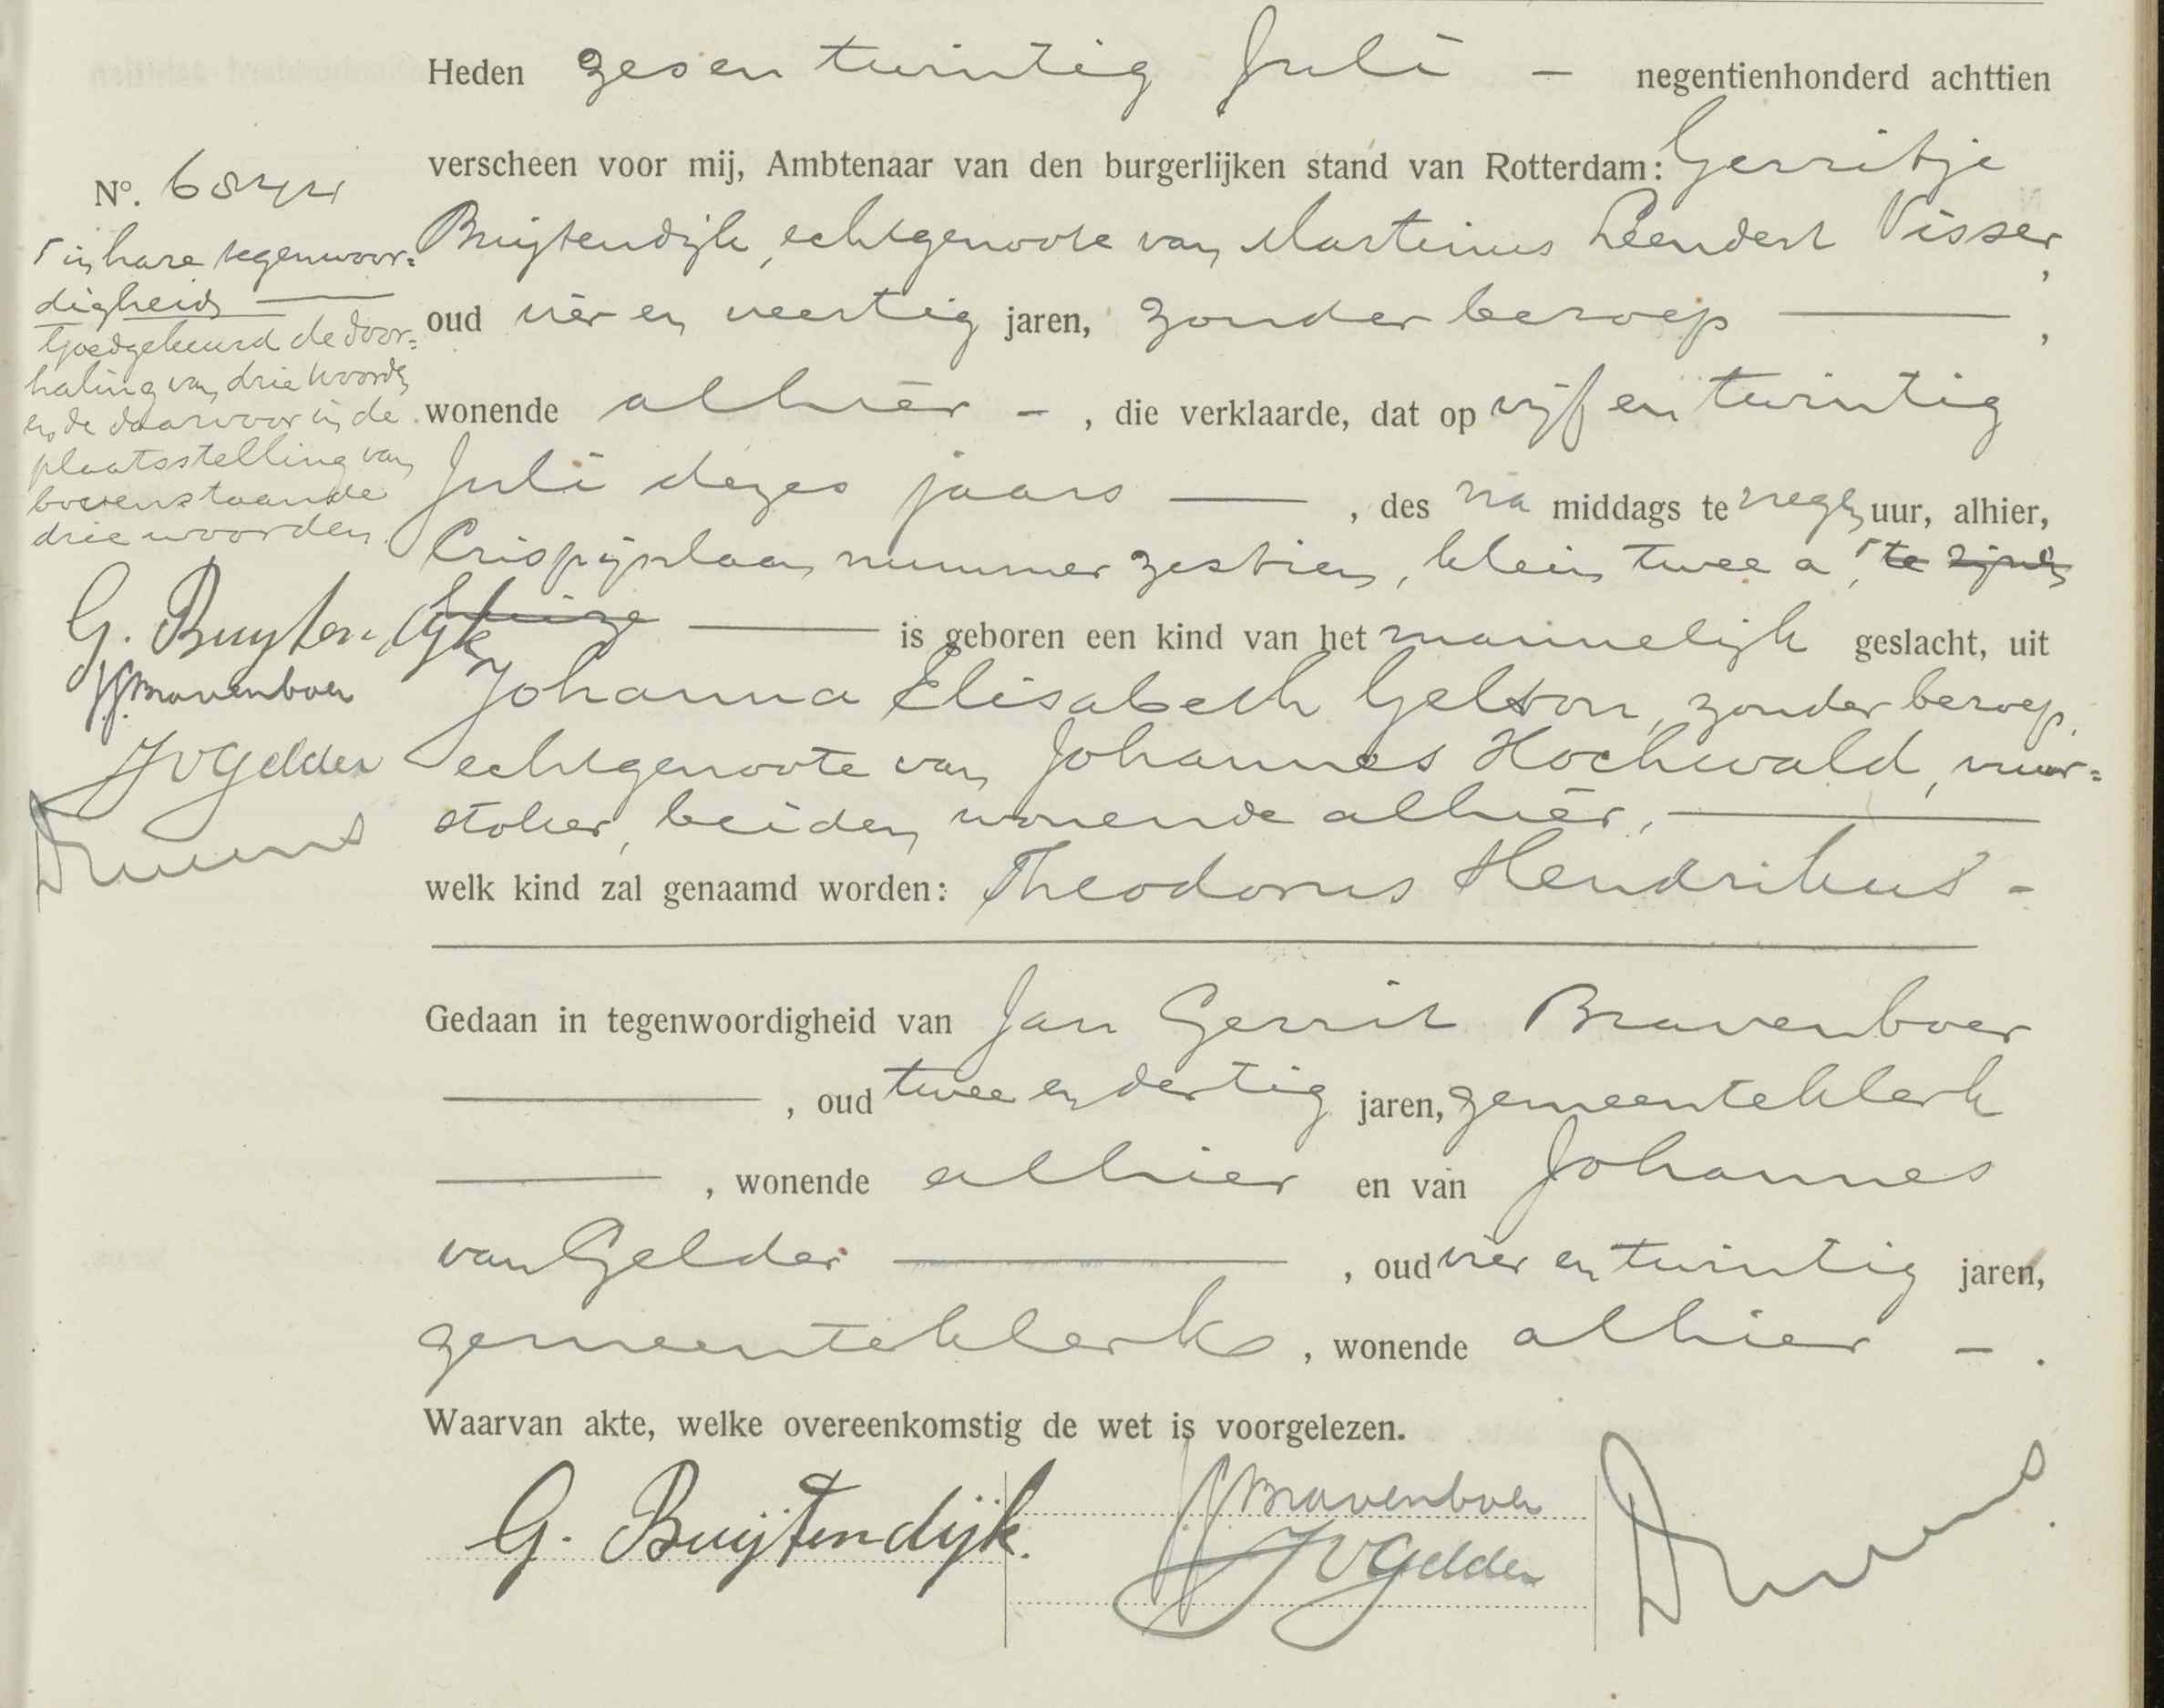 Heden zes en twintig Juli – negentienhonderd achttien
verscheen voor mij, Ambtenaar van den burgerlijken stand van Rotterdam: Gerritje
Buijtendijk, echtgenoote van Martinus Leendert Visser,
oud vier en veertig jaren, zonder beroep ,
wonende alhier – , die verklaarde, dat op vijf en twintig
Juli dezes jaars , des na middags te negen uur, alhier,
Crispijnlaan nummer zestien, klein twee a, te zijnen
huize is geboren een kind van het mannelijk geslacht, uit
Johanna Elisabeth Gelton, zonder beroep,
echtgenoote van Johannes Hochwald, vuur=
stoker, beiden wonende alhier,
welk kind zal genaamd worden: Theodorus Hendrikus –
Gedaan in tegenwoordigheid van Jan Gerrit Bravenboer
, oud twee en dertig jaren, gemeenteklerk
, wonende alhier en van Johannes
van Gelder , oud vier en twintig jaren,
gemeenteklerk , wonende alhier – .
Waarvan akte, welke overeenkomstig de wet is voorgelezen.
G. Buijtendijk.
JG Bravenboer
JvGelder
Nº.
in hare tegenwoor=
digheid
Goedgekeurd de door=
haling van drie woorden
en de daarvoor in de
plaatsstelling van
bovenstaande
drie woorden.
G. Buijtendijk
JG Bravenboer
JvGelder